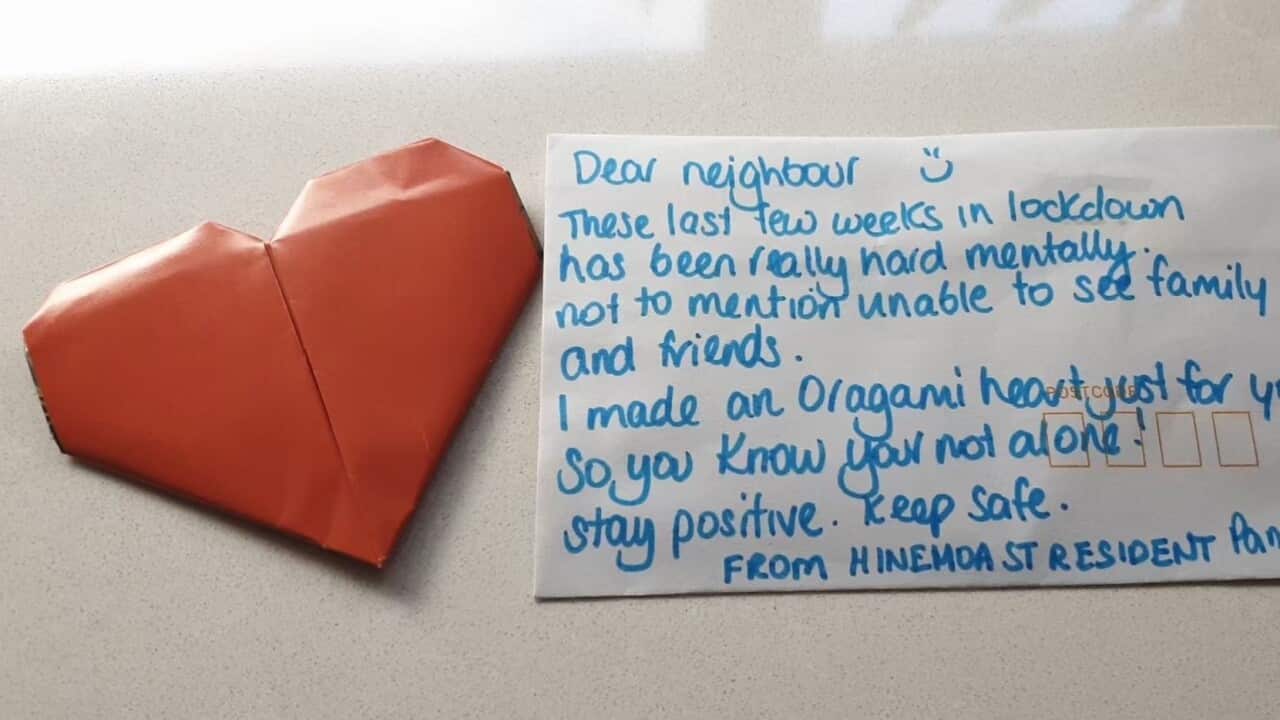 Dear neighbour
These last few weeks in lockdown
has been really hard mentally.
not to mention unable to see family
and friends.
I made an Oragami heart just for
POSTCODE
So you know your not alone!
stay positive. Keep safe.
FROM HINEMOA ST RESIDENT